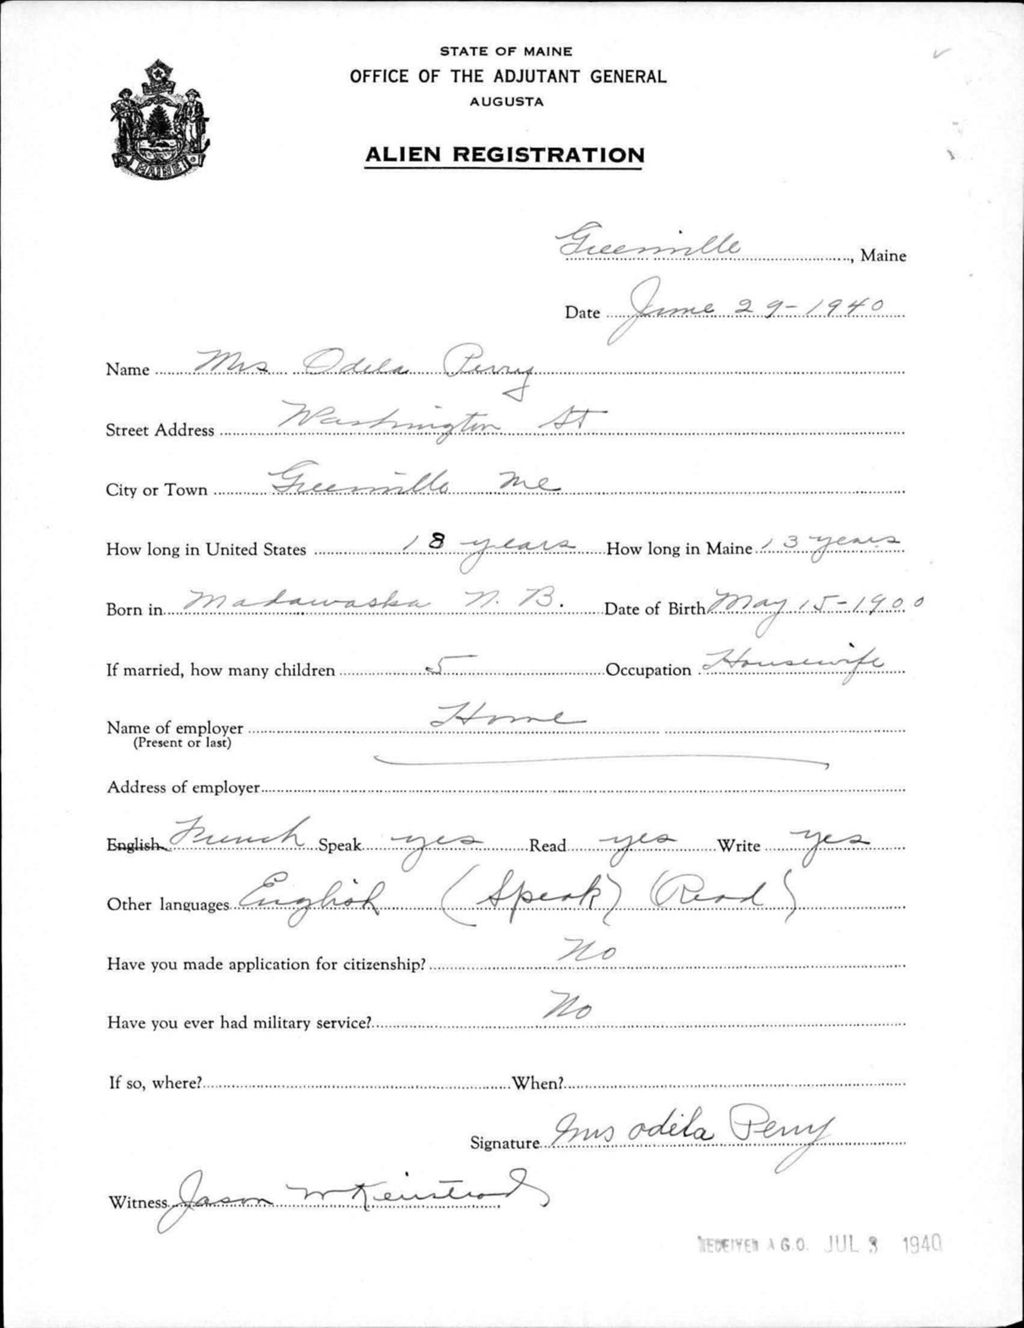 STATE OF MAINE
OFFICE OF THE ADJUTANT GENERAL
AUGUSTA
ALIEN REGISTRATION
MAINE
Greenville, Maine
Date June 29-1940
Name Mrs Odela Perry
Street Address Washington St
City or Town Greenville Me
How long in United States 18 years How long in Maine 13 years
Born in Madawaska N. B. Date of Birth May 15-1900
If married, how many children 5 Occupation Housewife
Name of employer Home
(Present or last)
Address of employer
English French Speak yes Read yes Write yes
Other languages English (Speak) (Read)
Have you made application for citizenship? No
Have you ever had military service? No
If so, where? When?
Signature Mrs odila Perry
Witness Jason
RECEIVED A.G.O. JUL 3 1940